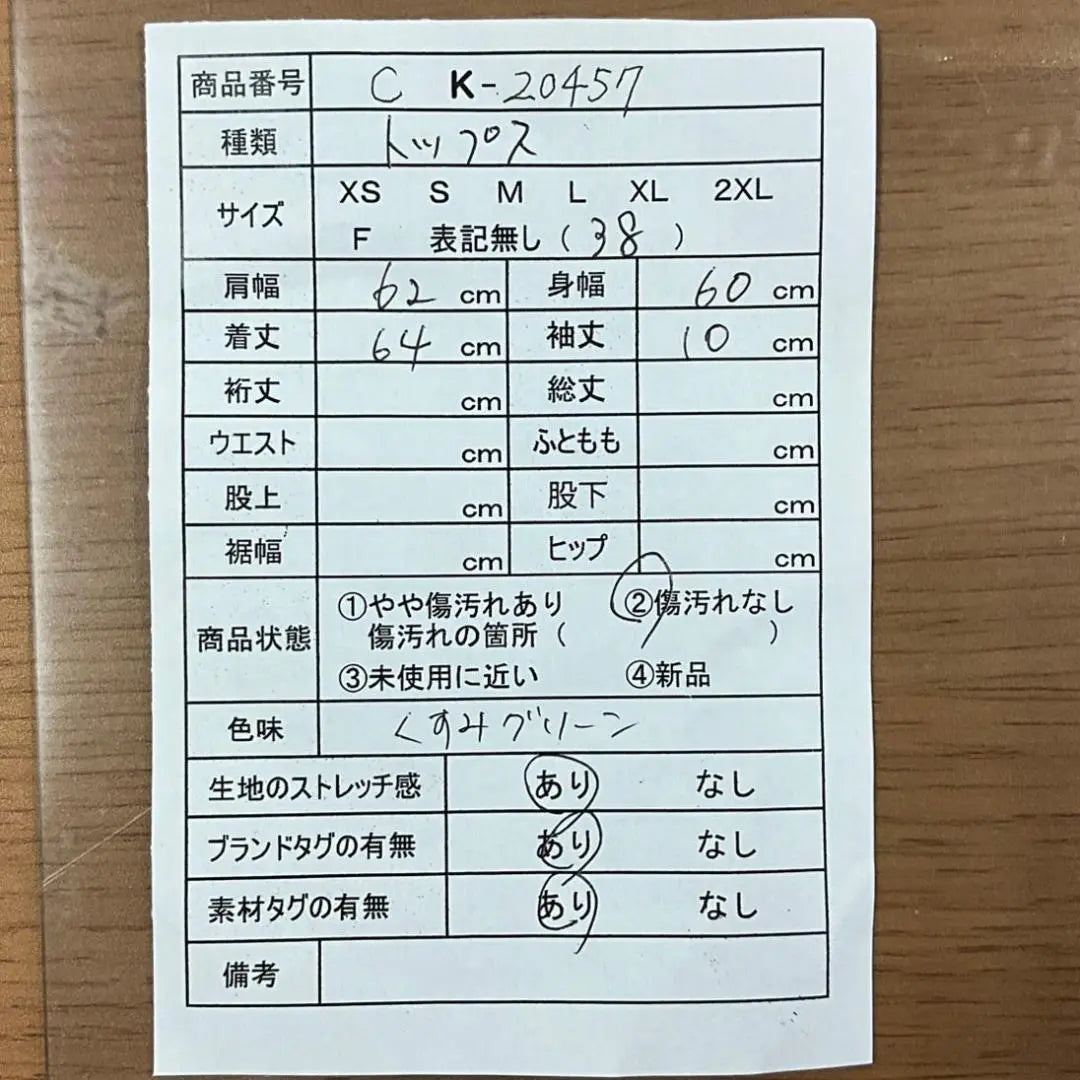 商品番号 C K-20457
種類 トップス
サイズ XS S M L XL 2XL
F 表記無し ( 38 )
肩幅 62 cm 身幅 60 cm
着丈 64 cm 袖丈 10 cm
裄丈 cm 総丈 cm
ウエスト cm ふともも cm
股上 cm 股下 cm
裾幅 cm ヒップ cm
商品状態 ①やや傷汚れあり ②傷汚れなし
傷汚れの箇所 ( )
③未使用に近い ④新品
色味 くすみグリーン
生地のストレッチ感 あり なし
ブランドタグの有無 あり なし
素材タグの有無 あり なし
備考